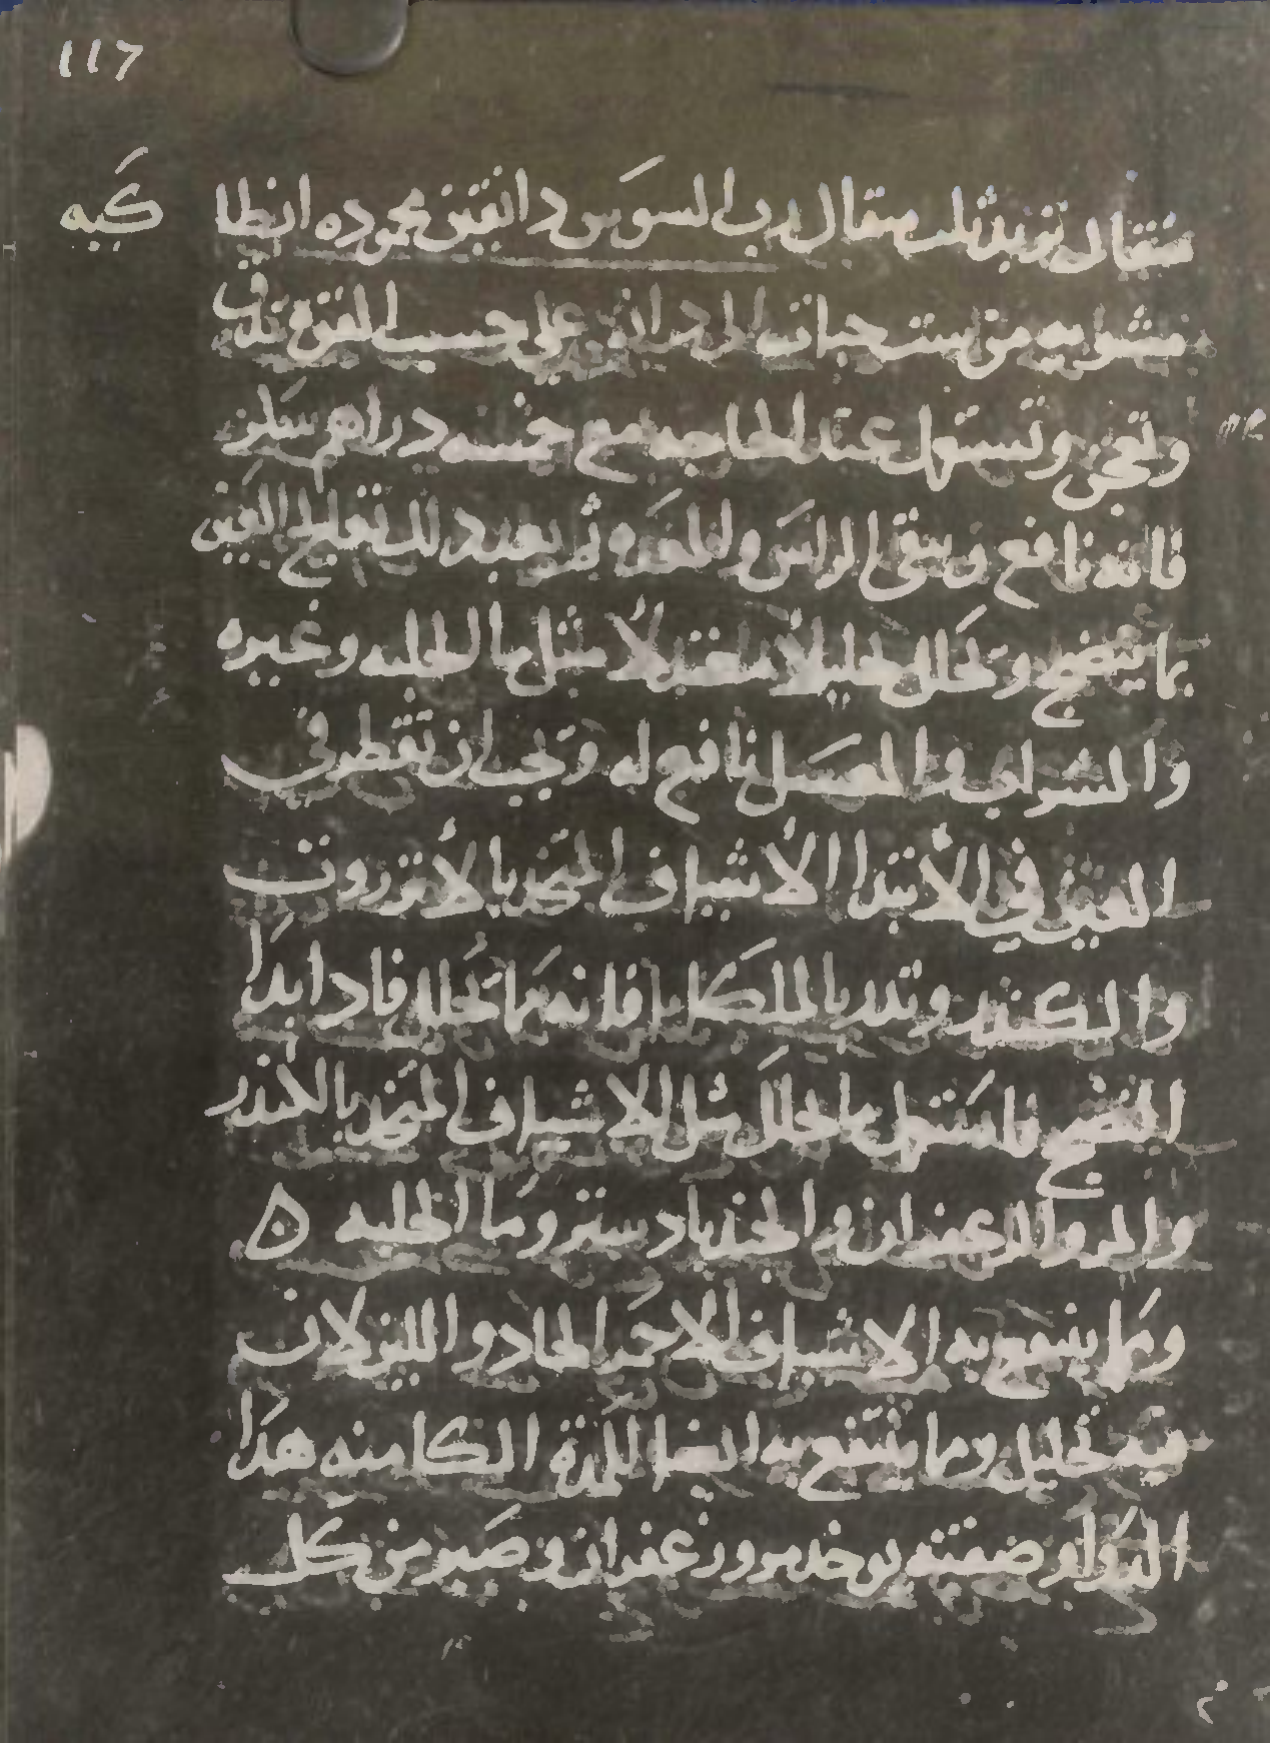 ١١٦
كيه
مثقال تربد ثلث مثقال رب السوس دانقين محموده انطا
مشويه من ست حبات الى دانق على حسب القوة تدق
وتعجن وتستعمل عند الحاجه مع خمسه دراهم سكر
فانه نافع ينقى الراس والمعده ثم بعد ذلك تعالج العين
بما ينضج وتحلل تحليلا معتدلا مثل ما الحلبه وغيره
والشراب والعسل نافع له وتجب ان تقطر في
العين في الأبتدا الأشياف المتخد بالأنزروت
والكندر وتدر بالملكايا فانه مما تحلل فادا ابدا
النضج فاستعمل ما تحلل مثل الاشياف المتخد بالكندر
والمر والزعفران والجندبادستر وما الحلبه ه
ومما ينتفع به الاشياف الاحمر الحاد واللين لان
فيه تحليل ومما ينتفع به ايضا للمدة الكامنه هدا
الدوا وصفته يوخد مر وزعفران وصبر من كل